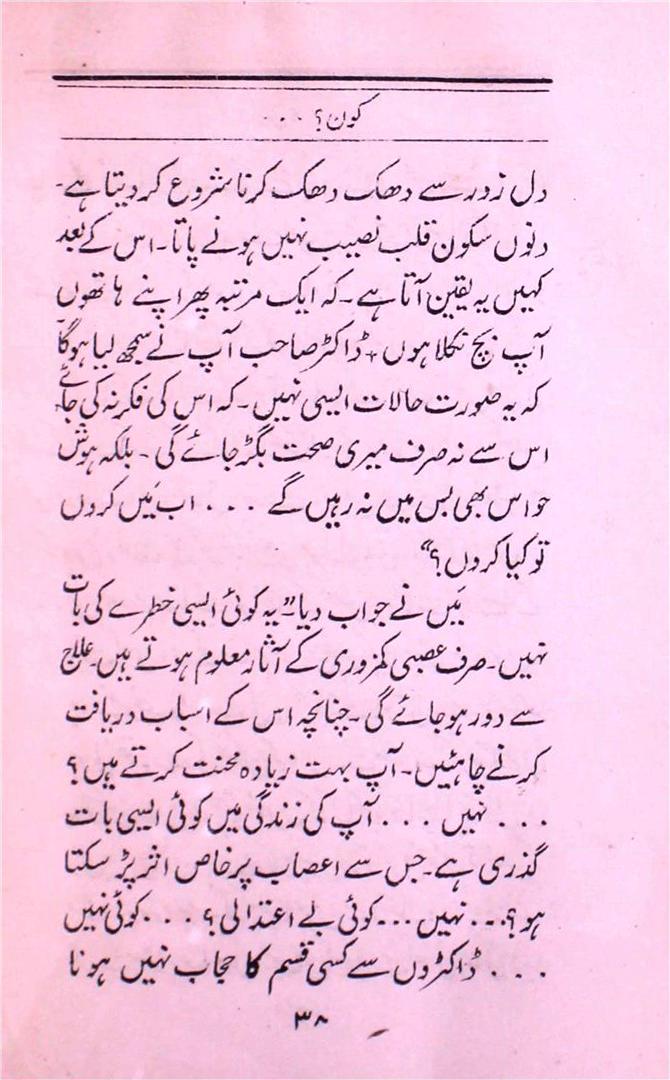 کون؟ ...
دل زور سے دھک دھک کرنا شروع کر دیتا ہے۔
دنوں سکون قلب نصیب نہیں ہونے پاتا۔ اس کے بعد
کہیں یہ یقین آتا ہے۔ کہ ایک مرتبہ پھر اپنے ہاتھوں
آپ بچ نکلا ہوں، ڈاکٹر صاحب آپ نے سمجھ لیا ہوگا
کہ یہ صورت حالات ایسی نہیں۔ کہ اس کی فکر نہ کی جائے
اس سے نہ صرف میری صحت بگڑ جائے گی۔ بلکہ ہوش
حواس بھی بس میں نہ رہیں گے ... اب مَیں کروں
تو کیا کروں؟“
مَیں نے جواب دیا۔ ”یہ کوئی ایسی خطرے کی بات
نہیں۔ صرف عصبی کمزوری کے آثار معلوم ہوتے ہیں۔ علاج
سے دور ہو جائے گی۔ چنانچہ اس کے اسباب دریافت
کرنے چاہئیں۔ آپ بہت زیادہ محنت کرتے ہیں؟
... نہیں ... آپ کی زندگی میں کوئی ایسی بات
گذری ہے۔ جس سے اعصاب پر خاص اثر پڑ سکتا
ہو؟... نہیں ... کوئی بے اعتدالی؟ ... کوئی نہیں
... ڈاکٹروں سے کسی قسم کا حجاب نہیں ہونا
۳۸